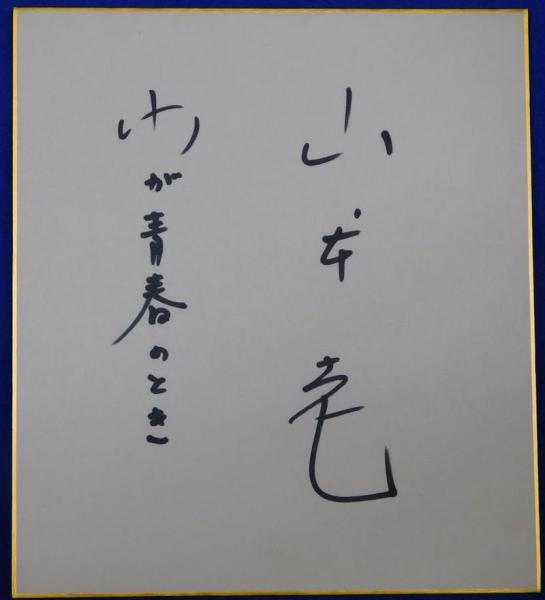 山本
わが青春のとき